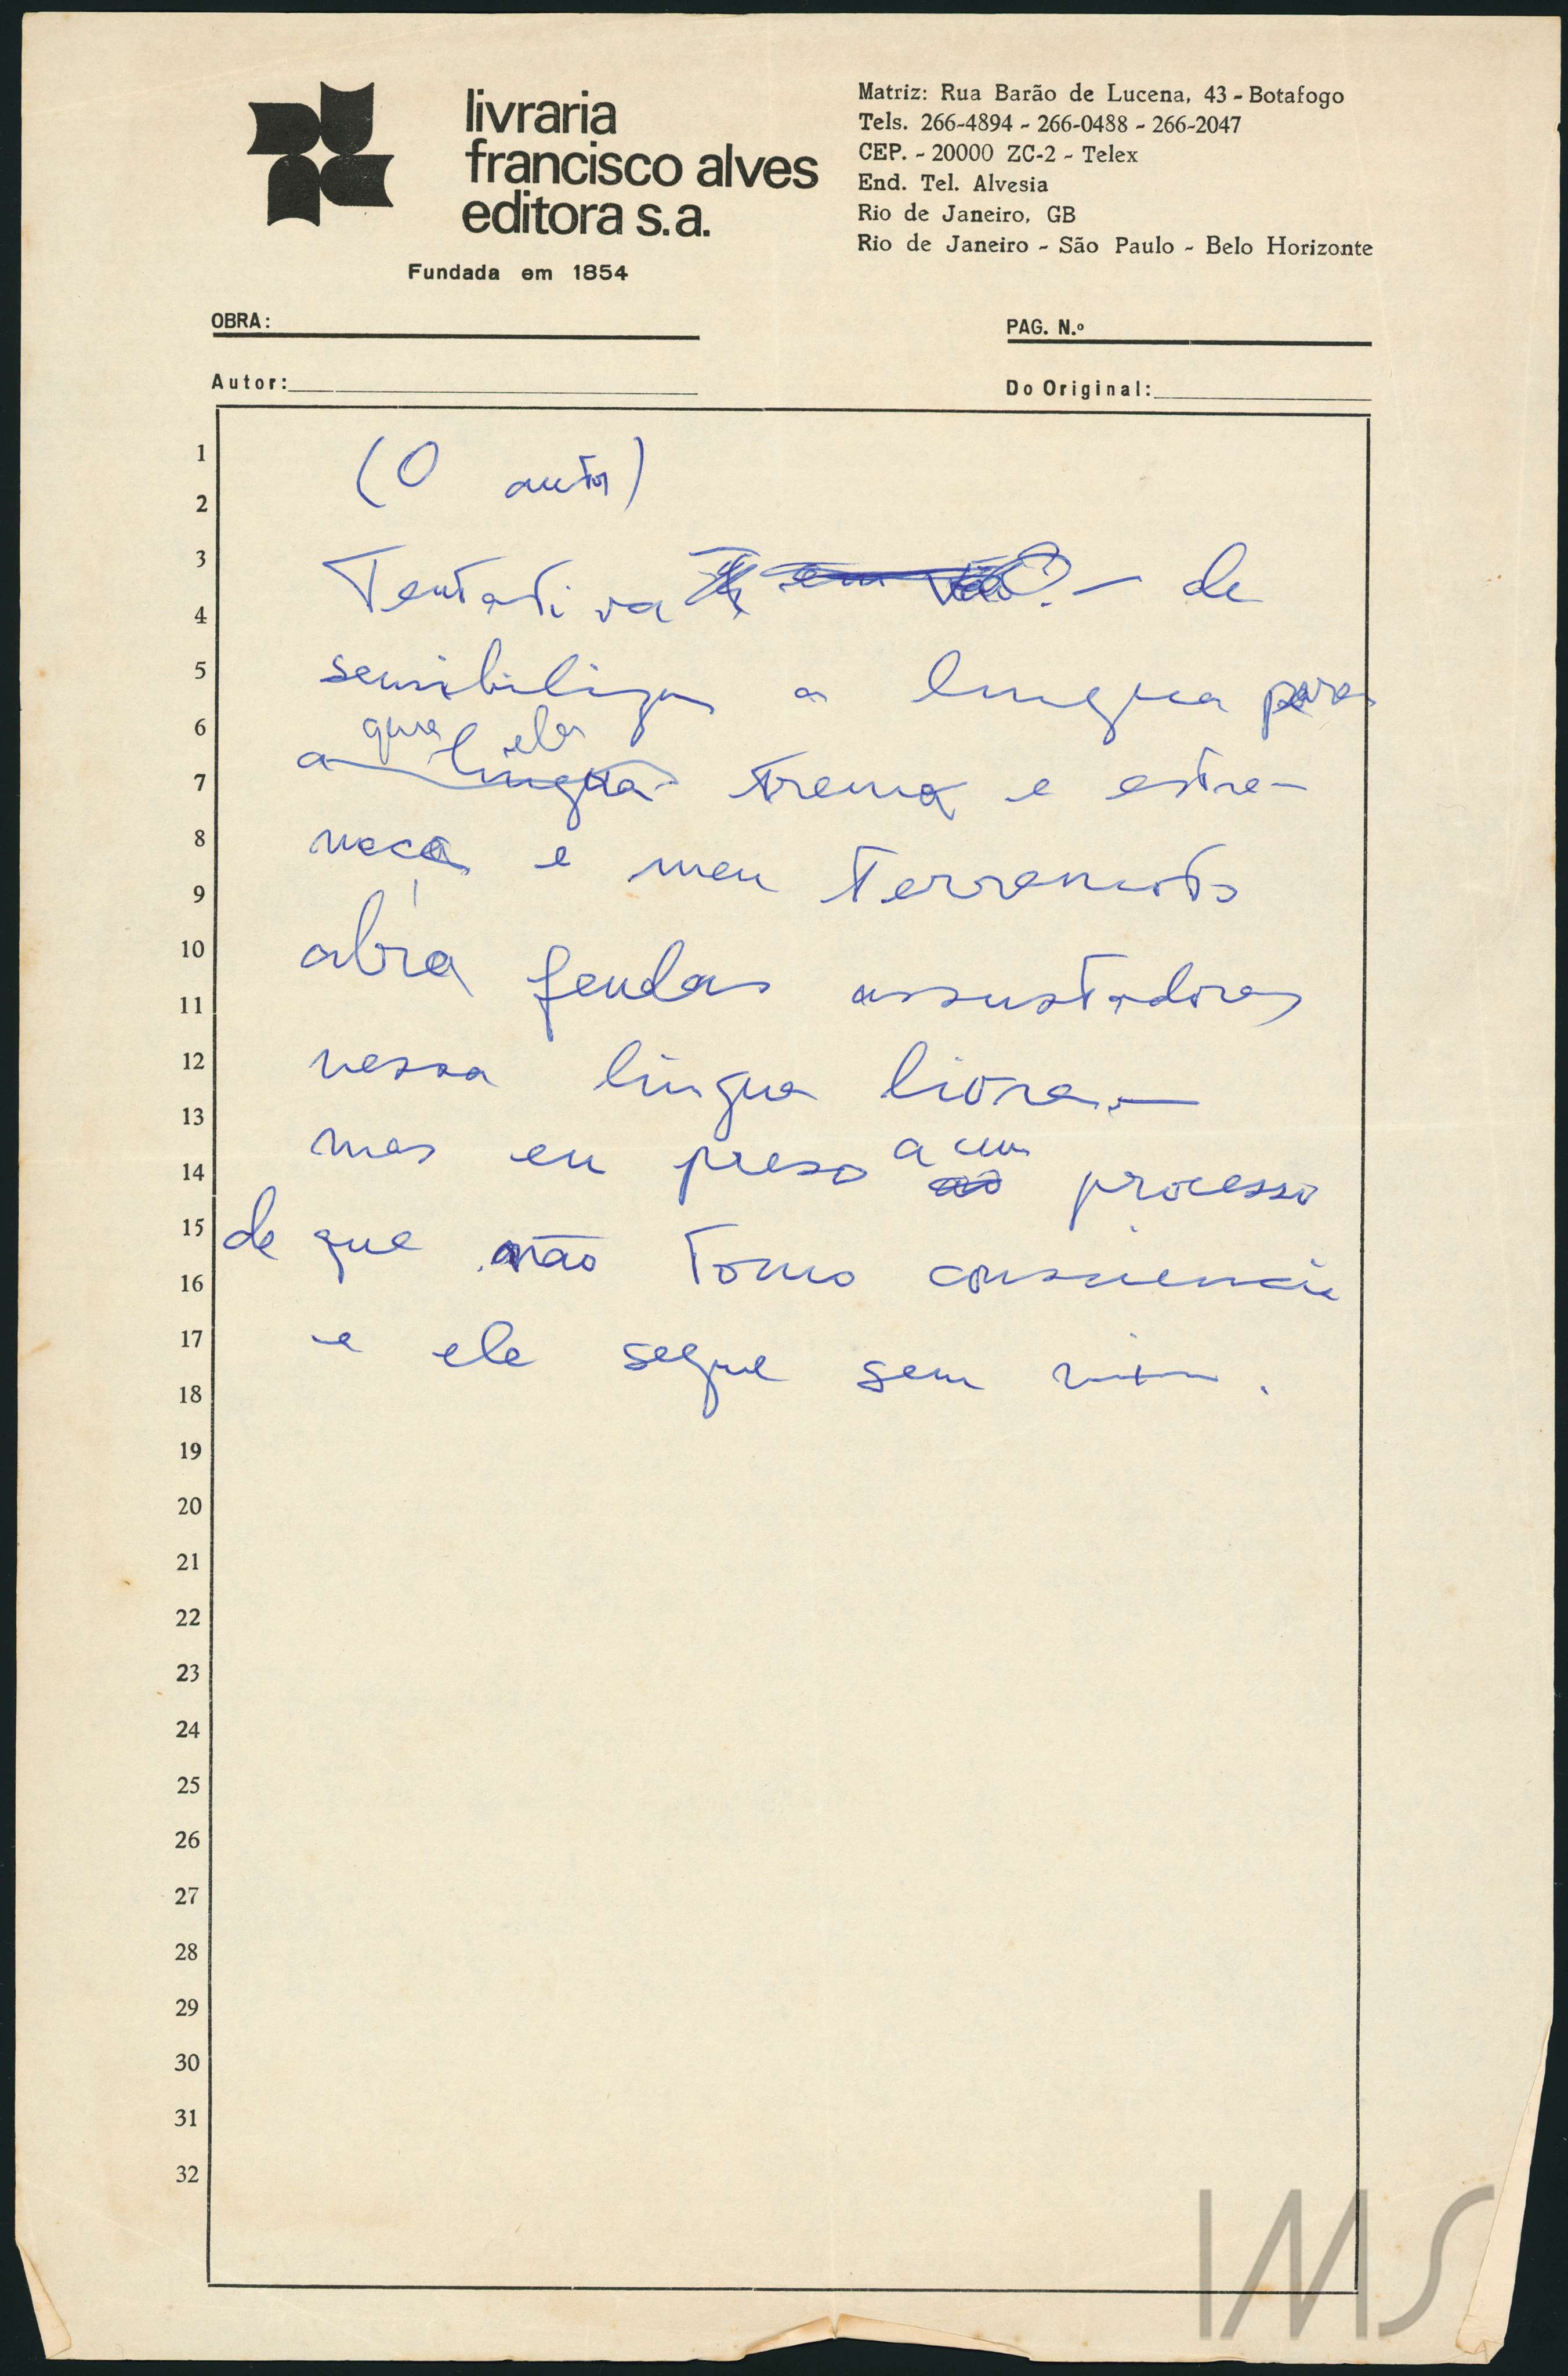 livraria
francisco alves
editora s.a.
Fundada em 1854
Matriz: Rua Barão de Lucena, 43 - Botafogo
Tels. 266-4894 - 266-0488 - 266-2047
CEP. - 20000 ZC-2 - Telex
End. Tel. Alvesia
Rio de Janeiro, GB
Rio de Janeiro - São Paulo - Belo Horizonte
OBRA:
PAG. N.º
Autor:
Do Original:
1
2
3
4
5
6
7
8
9
10
11
12
13
14
15
16
17
18
19
20
21
22
23
24
25
26
27
28
29
30
31
32
(O autor)
Tentativa em vão? — de
sensibilizar a lingua para
que ela
a lingua trema e estre-
meça e meu terremoto
abra fendas assustadoras
nessa lingua livre. —
a um
mas eu preso ao processo
de que não tomo consciencia
e ele segue sem mim.
IMS